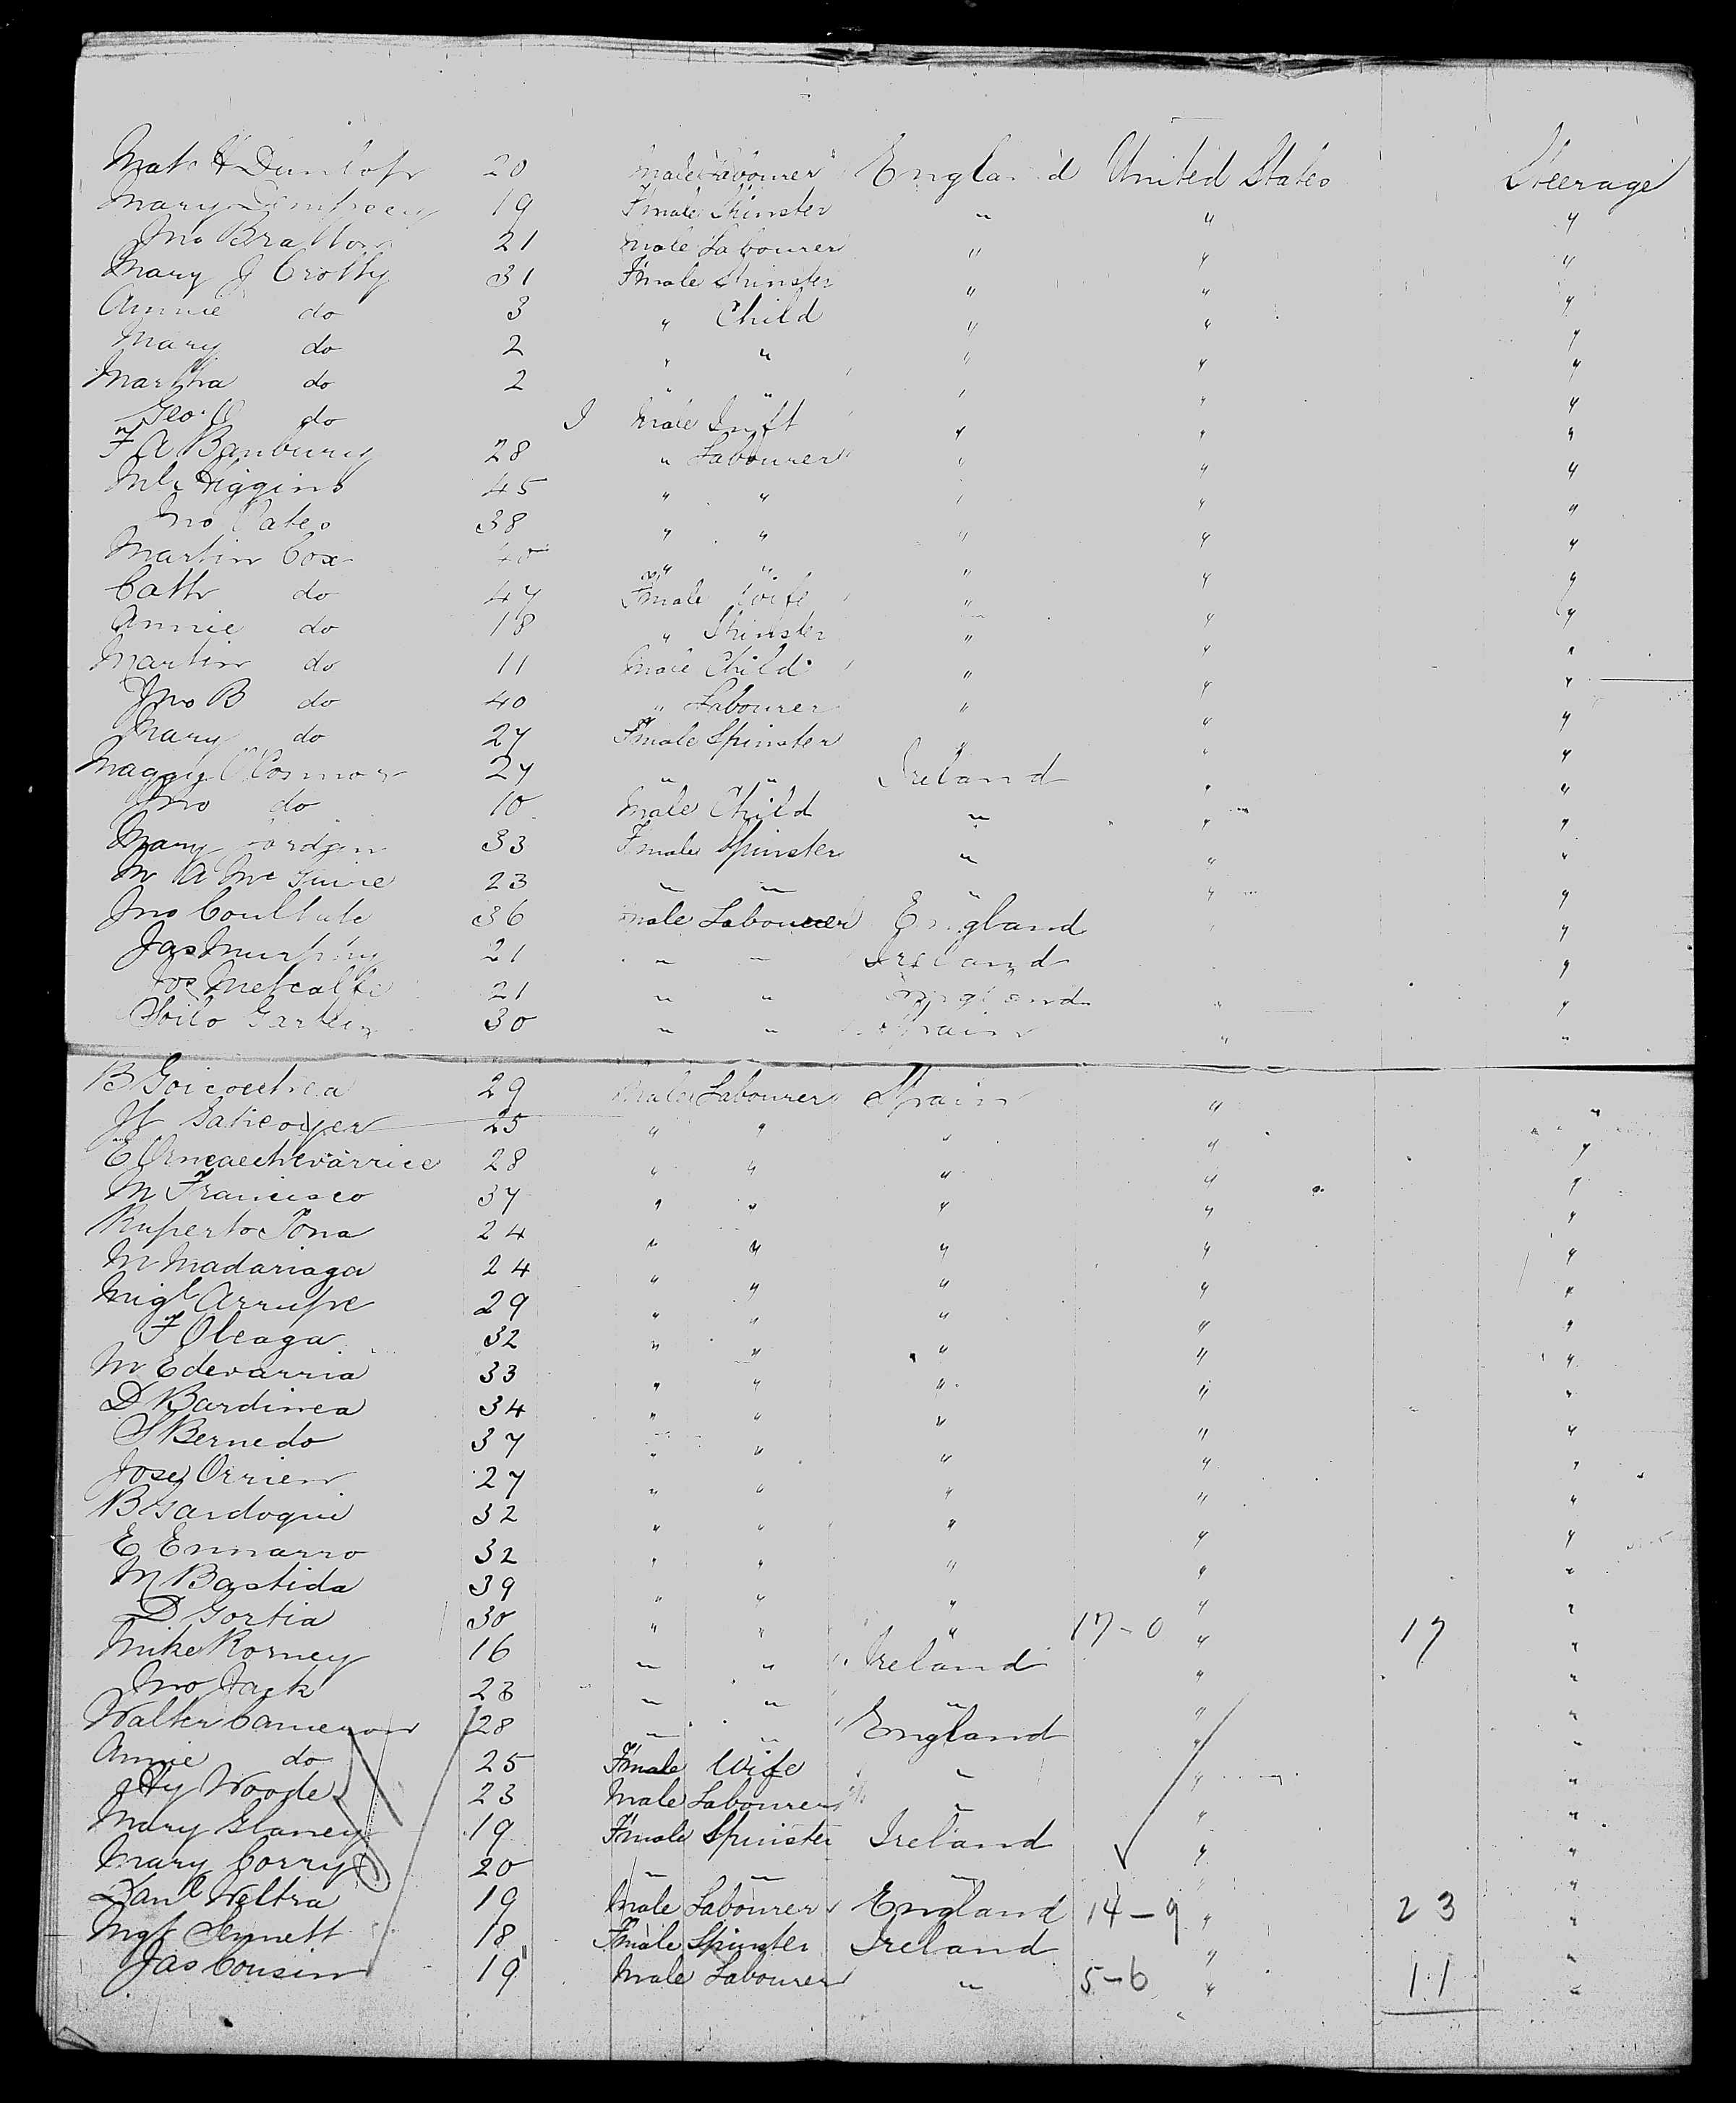 Mat H Dunlop 20 Male Labourer England United States Steerage
Mary Dempsey 19 Fmale Spinster " " "
Jno Bratton 21 Male Labourer " " "
Mary J Crotty 31 Fmale Spinster " " "
Annie do 3 " Child " " "
Mary do 2 " " " " "
Martha do 2 " " " " "
Geo. do I Male Inft " " "
F A Banbury 28 " Labourer " " "
Ml Higgins 45 " " " " "
Jno Oates 38 " " " " "
Martin Cox 40 " " " " "
Cath do 47 Fmale Wife " " "
Annie do 18 " Spinster " " "
Martin do 11 Male Child " " "
Jno B do 40 " Labourer " " "
Mary do 27 Fmale Spinster " " "
Maggie O'Connor 27 " " Ireland " "
Jno do 10 Male Child " " "
Mary Jordan 33 Fmale Spinster " " "
M A Mc 23 " " " " "
Jno Coultate 36 Male Labourer England " "
Jas Murphy 21 " " Ireland " "
Jos Metcalfe 21 " " England " "
30 " " Spain " "
B Goicoechea 29 Male Labourer Spain " "
25 " " " " "
E 28 " " " " "
M Francisco 37 " " " " "
Ruperto Tona 24 " " " " "
M Madariaga 24 " " " " "
Migl Arrupe 29 " " " " "
F Oleaga 32 " " " " "
M Edevarria 33 " " " " "
D Bardinea 34 " " " " "
S Bernedo 37 " " " " "
Jose Orrien 27 " " " " "
B Gardoqui 32 " " " " "
E Ennarro 32 " " " " "
M Bastida 39 " " " " "
D Gortia 30 " " " 17-0 " 17 "
Mike Rorney 16 " " Ireland " "
Jno Jack 23 " " " " "
Walter Cameron 28 " " England " "
Annie do 25 Fmale Wife " " "
Hy Woode 23 Male Labourer " " "
Mary Glaney 19 Fmale Spinster Ireland " "
Mary Corry 20 " " " " "
Danl Weltra 19 Male Labourer England 14-9 " 23 "
Mgt Sennett 18 Fmale Spinster Ireland " "
Jas Cousin 19 Male Labourer " 5-6 " 11 "